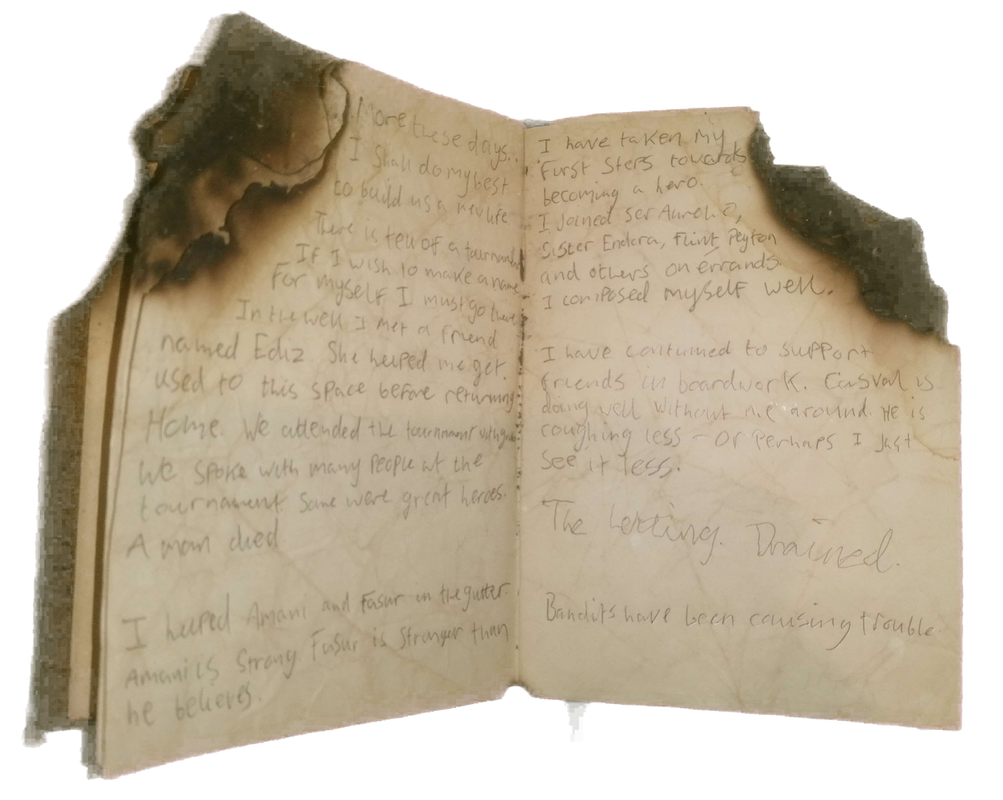 More these days..
I shall do my best
to build us a new life
There is    of a
If I wish to make a name
For myself I must go there
In the well I met a friend
named Ediz She helped me get
used to this space before returning
Home. We attended the tournament
We spoke with many people at the
tournament some were great heroes.
A man died
I helped Amani and Fasur in the gutter.
Amani is Strong Fasur is Stronger than
he believes.
I have taken my
First Steps towards
becoming a hero.
I joined Ser
Sister Endora, Flint Peyton
and others on errands
I composed myself well.
I have continued to support
friends in boardwork. Casval is
doing well without me around He is
coughing less - Or Perhaps I just
see it less.
The    Drained.
Bandits have been causing trouble